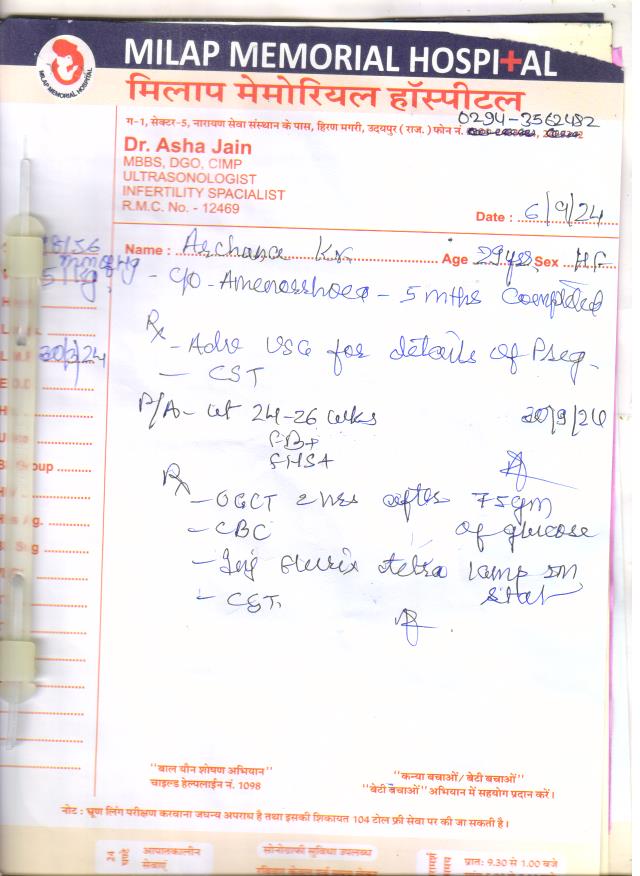 MILAP MEMORIAL HOSPITAL
मिलाप मेमोरियल हॉस्पीटल
MILAP MEMORIAL HOSPITAL
0294-3562482
ग-1, सेक्टर-5, नारायण सेवा संस्थान के पास, हिरण मगरी, उदयपुर ( राज. ) फोन नं.
Dr. Asha Jain
MBBS, DGO, CIMP
ULTRASONOLOGIST
INFERTILITY SPACIALIST
R.M.C. No. - 12469
Date : 6/9/24
Name : Archana Kr Age 29yrs Sex
- c/o - Amenorrhoea - 5 mths Completed
Rx
- Adv USG for details of Preg -
20/3/24
- CST
P/A - ut 24-26 wks 20/9/24
FHS+
Rx
- OGCT 2 hrs after 75gm
of glucose
- CBC
- Inj tetra 1 amp IM
stat
- CST.
Group
"बाल यौन शोषण अभियान"
चाइल्ड हेल्पलाईन नं. 1098
"कन्या बचाओं / बेटी बचाओं"
"बेटी बचाओं" अभियान में सहयोग प्रदान करें।
नोट : भ्रूण लिंग परीक्षण करवाना जघन्य अपराध है तथा इसकी शिकायत 104 टोल फ्री सेवा पर की जा सकती है।
24 घण्टे
आपातकालीन
सेवाएं
सोनोग्राफी सुविधा उपलब्ध
प्रात: 9.30 से 1.00 बजे